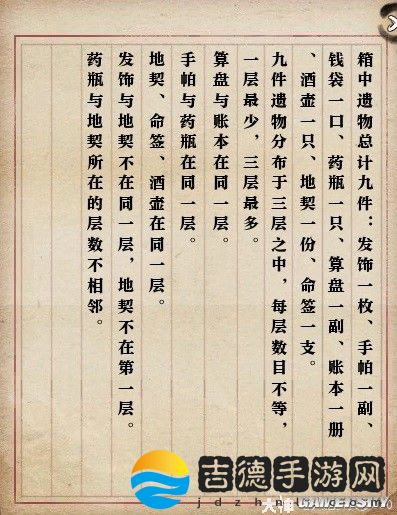 箱中遗物总计九件：发饰一枚、手帕一副、
钱袋一口、药瓶一只、算盘一副、账本一册
、酒壶一只、地契一份、命签一支。
九件遗物分布于三层之中，每层数目不等，
一层最少，三层最多。
算盘与账本在同一层。
手帕与药瓶在同一层。
地契、命签、酒壶在同一层。
发饰与地契不在同一层，地契不在第一层。
药瓶与地契所在的层数不相邻。
吉德手游网
大神